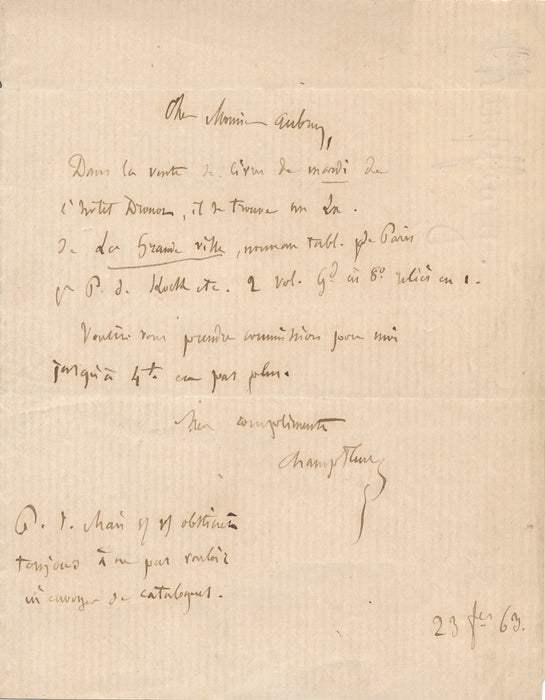 Cher Monsieur Aubry,
Dans la vente de livres de mardi de
l'hôtel Drouot, il se trouve un Ex.
de La Grande ville, nouveau tabl. de Paris
p P. de Kock etc. 2 vol. Gd in 8o reliés en 1.
Voulez vous prendre commission pour moi
jusqu'à 4f. ou pas plus.
Mes compliments
Champfleury
P. S. Mais obstinez
toujours à ne pas vouloir
m'envoyer de catalogues.
23 fer 63.